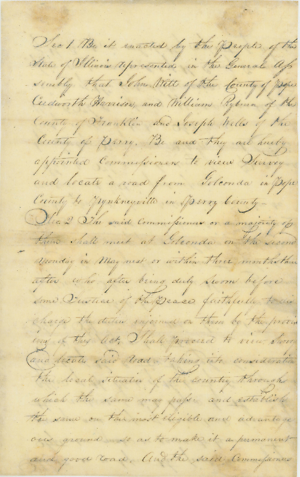 Sec 1 Be it enacted by the People of the
State of Illinois represented in the General Ass
embly that John Witt of the County of Pope
and William of the
County of Franklin and Joseph Wells of the
County of Perry, Be and they are hereby
appointed Commissioners to view Survey
and locate a road from Golconda in Pope
County to Pinckneyville in Perry County
Sec 2 The said commissioners or a majority of
them shall meet at Golconda on the second
Monday in May next or within three months there
after who after being duly sworn before
some Justice of the Peace faithfully to dis
charge the duties enjoined on them by the provis
ions of this act, shall proceed to view survey
and locate said road, taking into consideration
the local situation of the country through
which the same may pass and establish
the same on the most eligible and advantage
ous ground so as to make it a permanent
and good road. And the said Commissioners